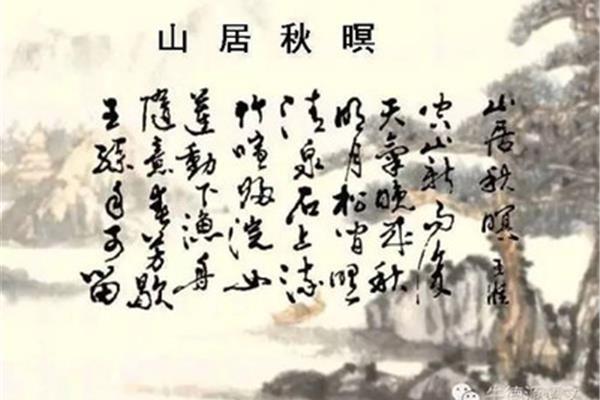 山居秋暝
山居秋暝 王維
空山新雨後
天氣晚來秋
明月松間照
清泉石上流
竹喧歸浣女
蓮動下漁舟
隨意春芳歇
王孫自可留